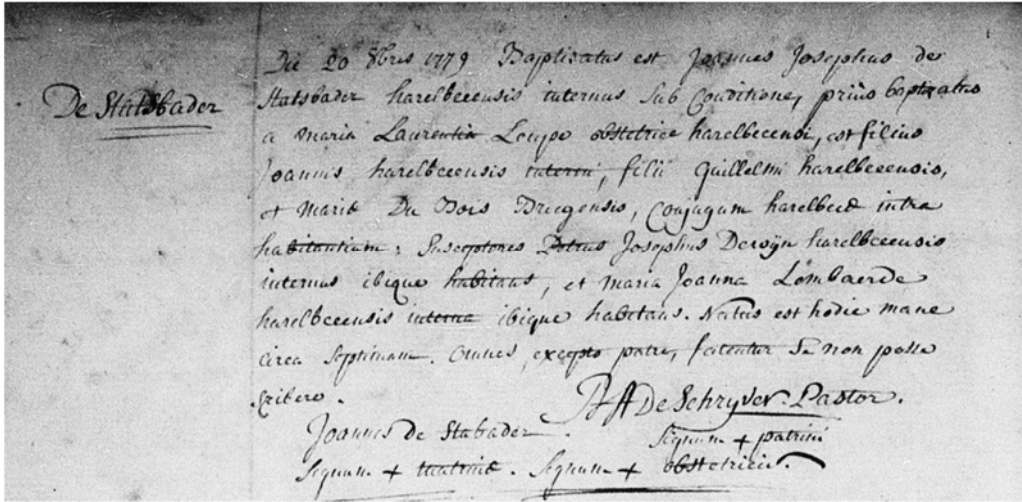 De Statsbader
Die 20 8bris 1779 Baptisatus est Joannes Josephus de
Statsbader harelbecensis internus sub Conditione, prius baptisatus
a maria Laurentia Loupe obstetrice harelbecensi, est filius
Joannis harelbecensis interni, filii Guillelmi harelbecensis,
et Mariæ Du Bois Bringensis, Conjugum harelbecæ intra
habitantium: Susceptores Petrus Josephus Dewijn harelbecensis
internus ibique habitans, et maria Joanna Lombaerde
harelbecensis interna ibique habitans. Natus est hodie mane
circa septimam. omnes, excepto patre, fatentur se non posse
scribere.
De Schryver Pastor.
Joannes de Stabader.
Signum + patrini
Signum + matrinæ. Signum + obstetricis.